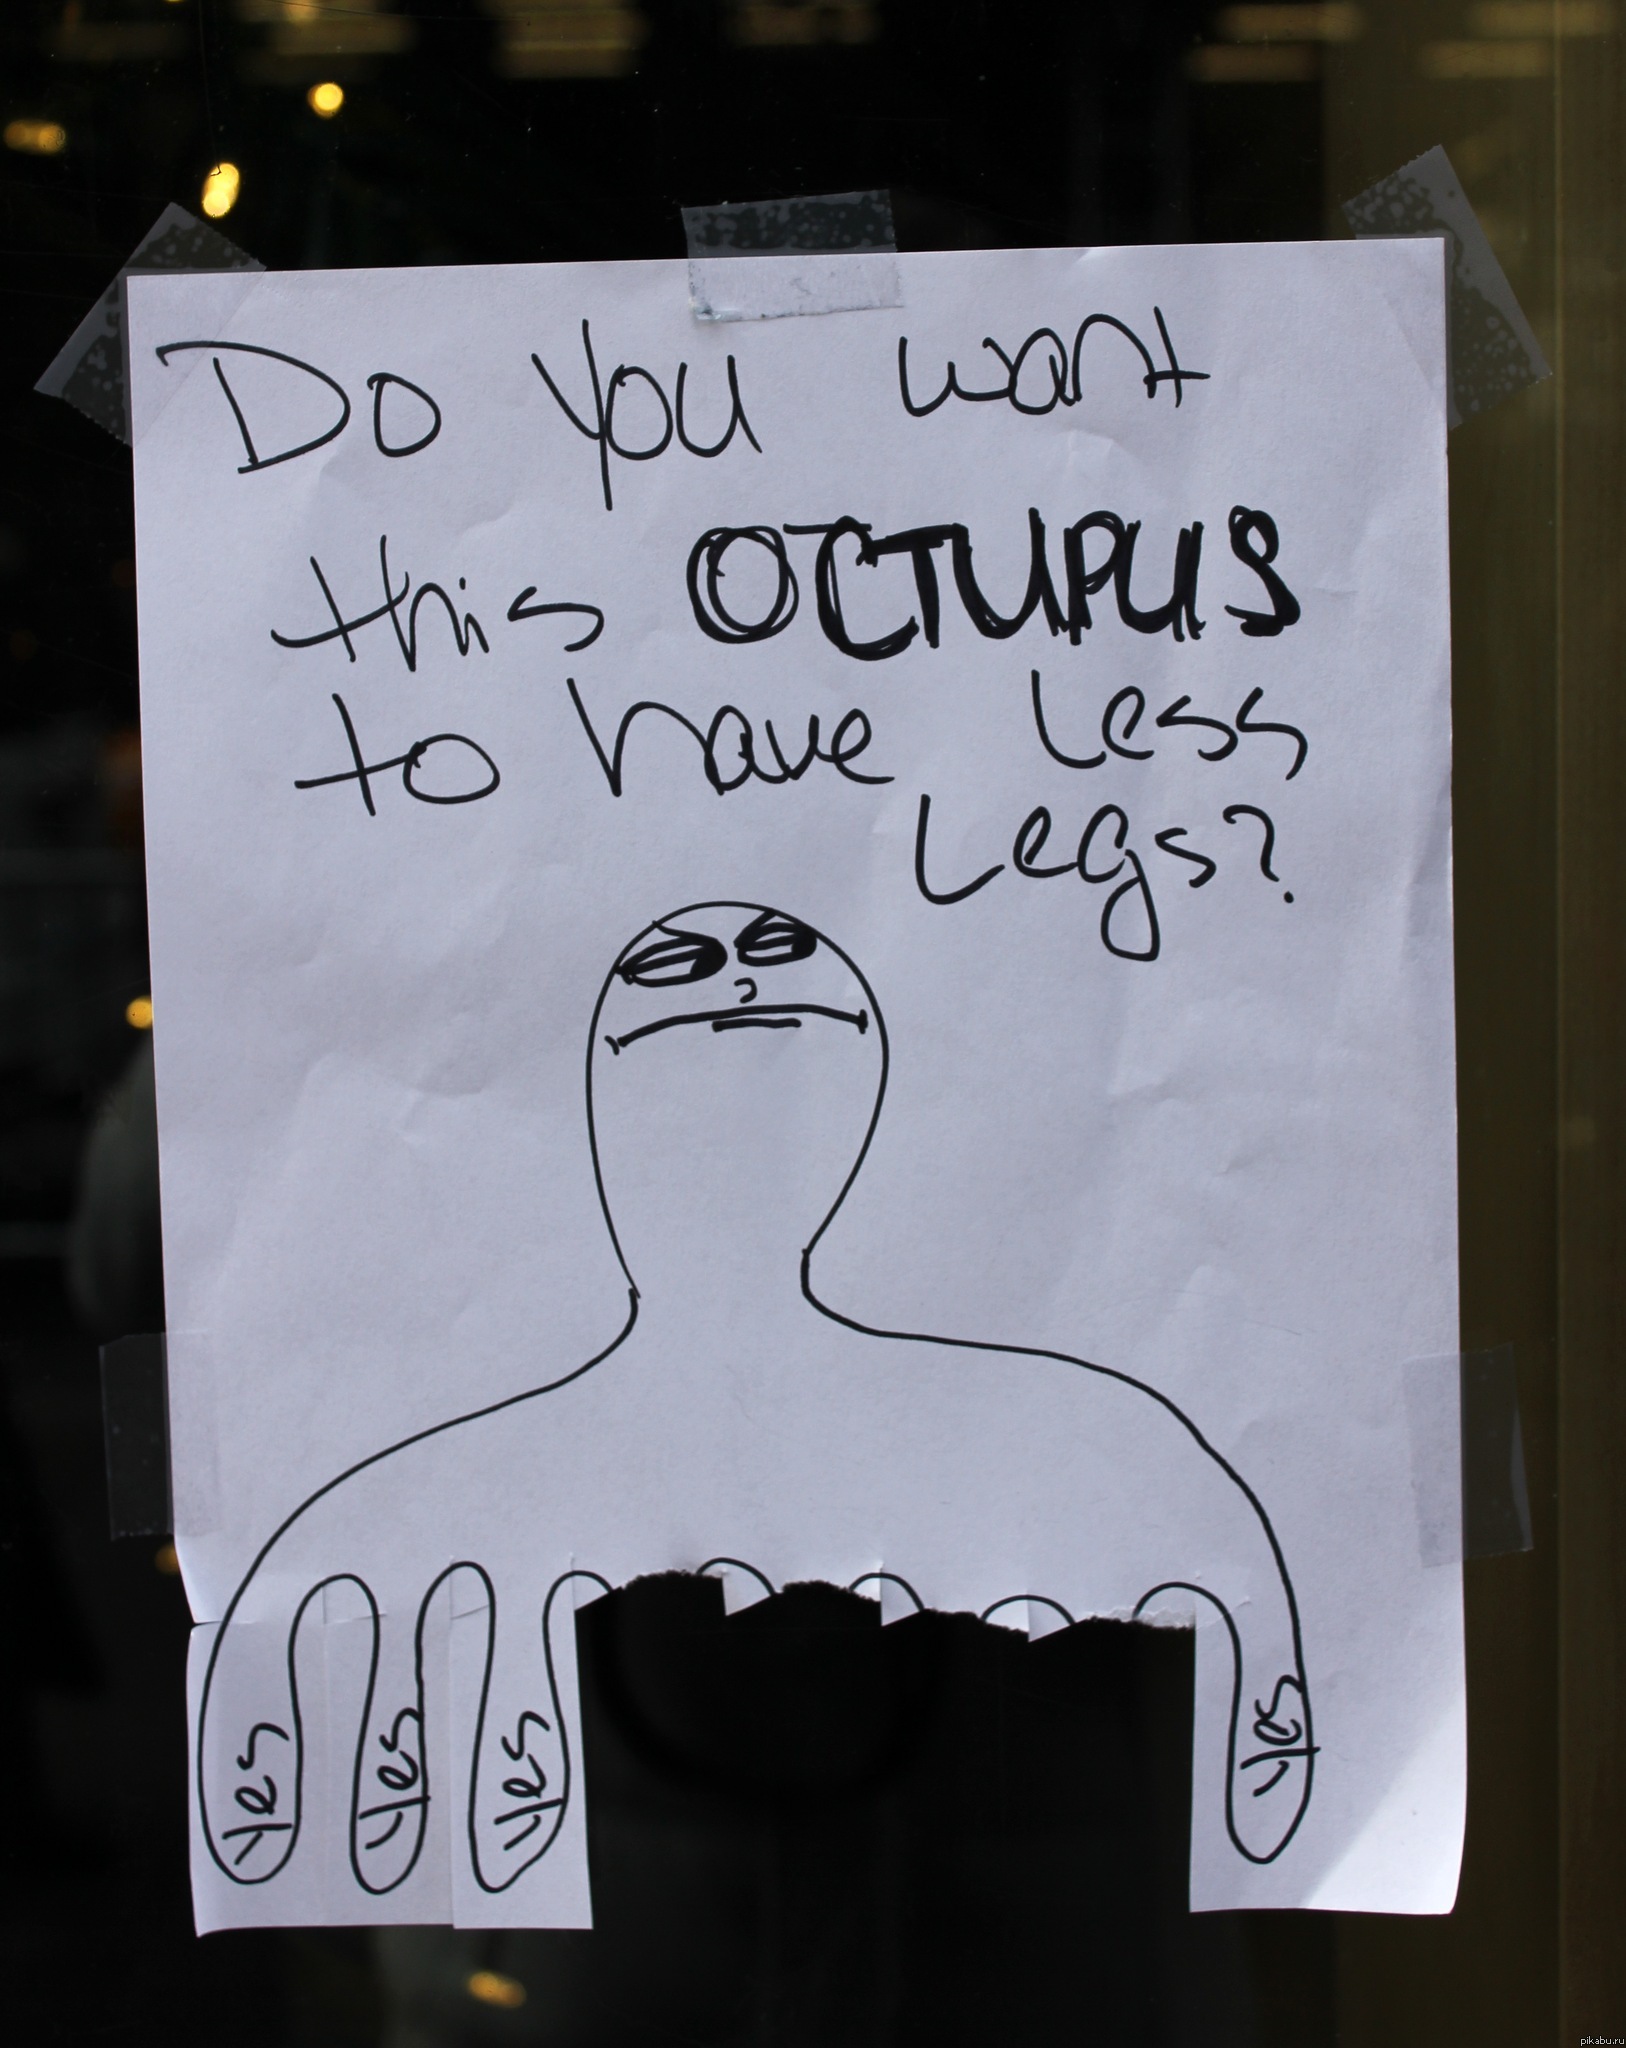 Do you want
this OCTUPUS
to have Less
Legs?
yes
yes
yes
yes
pikabu.ru